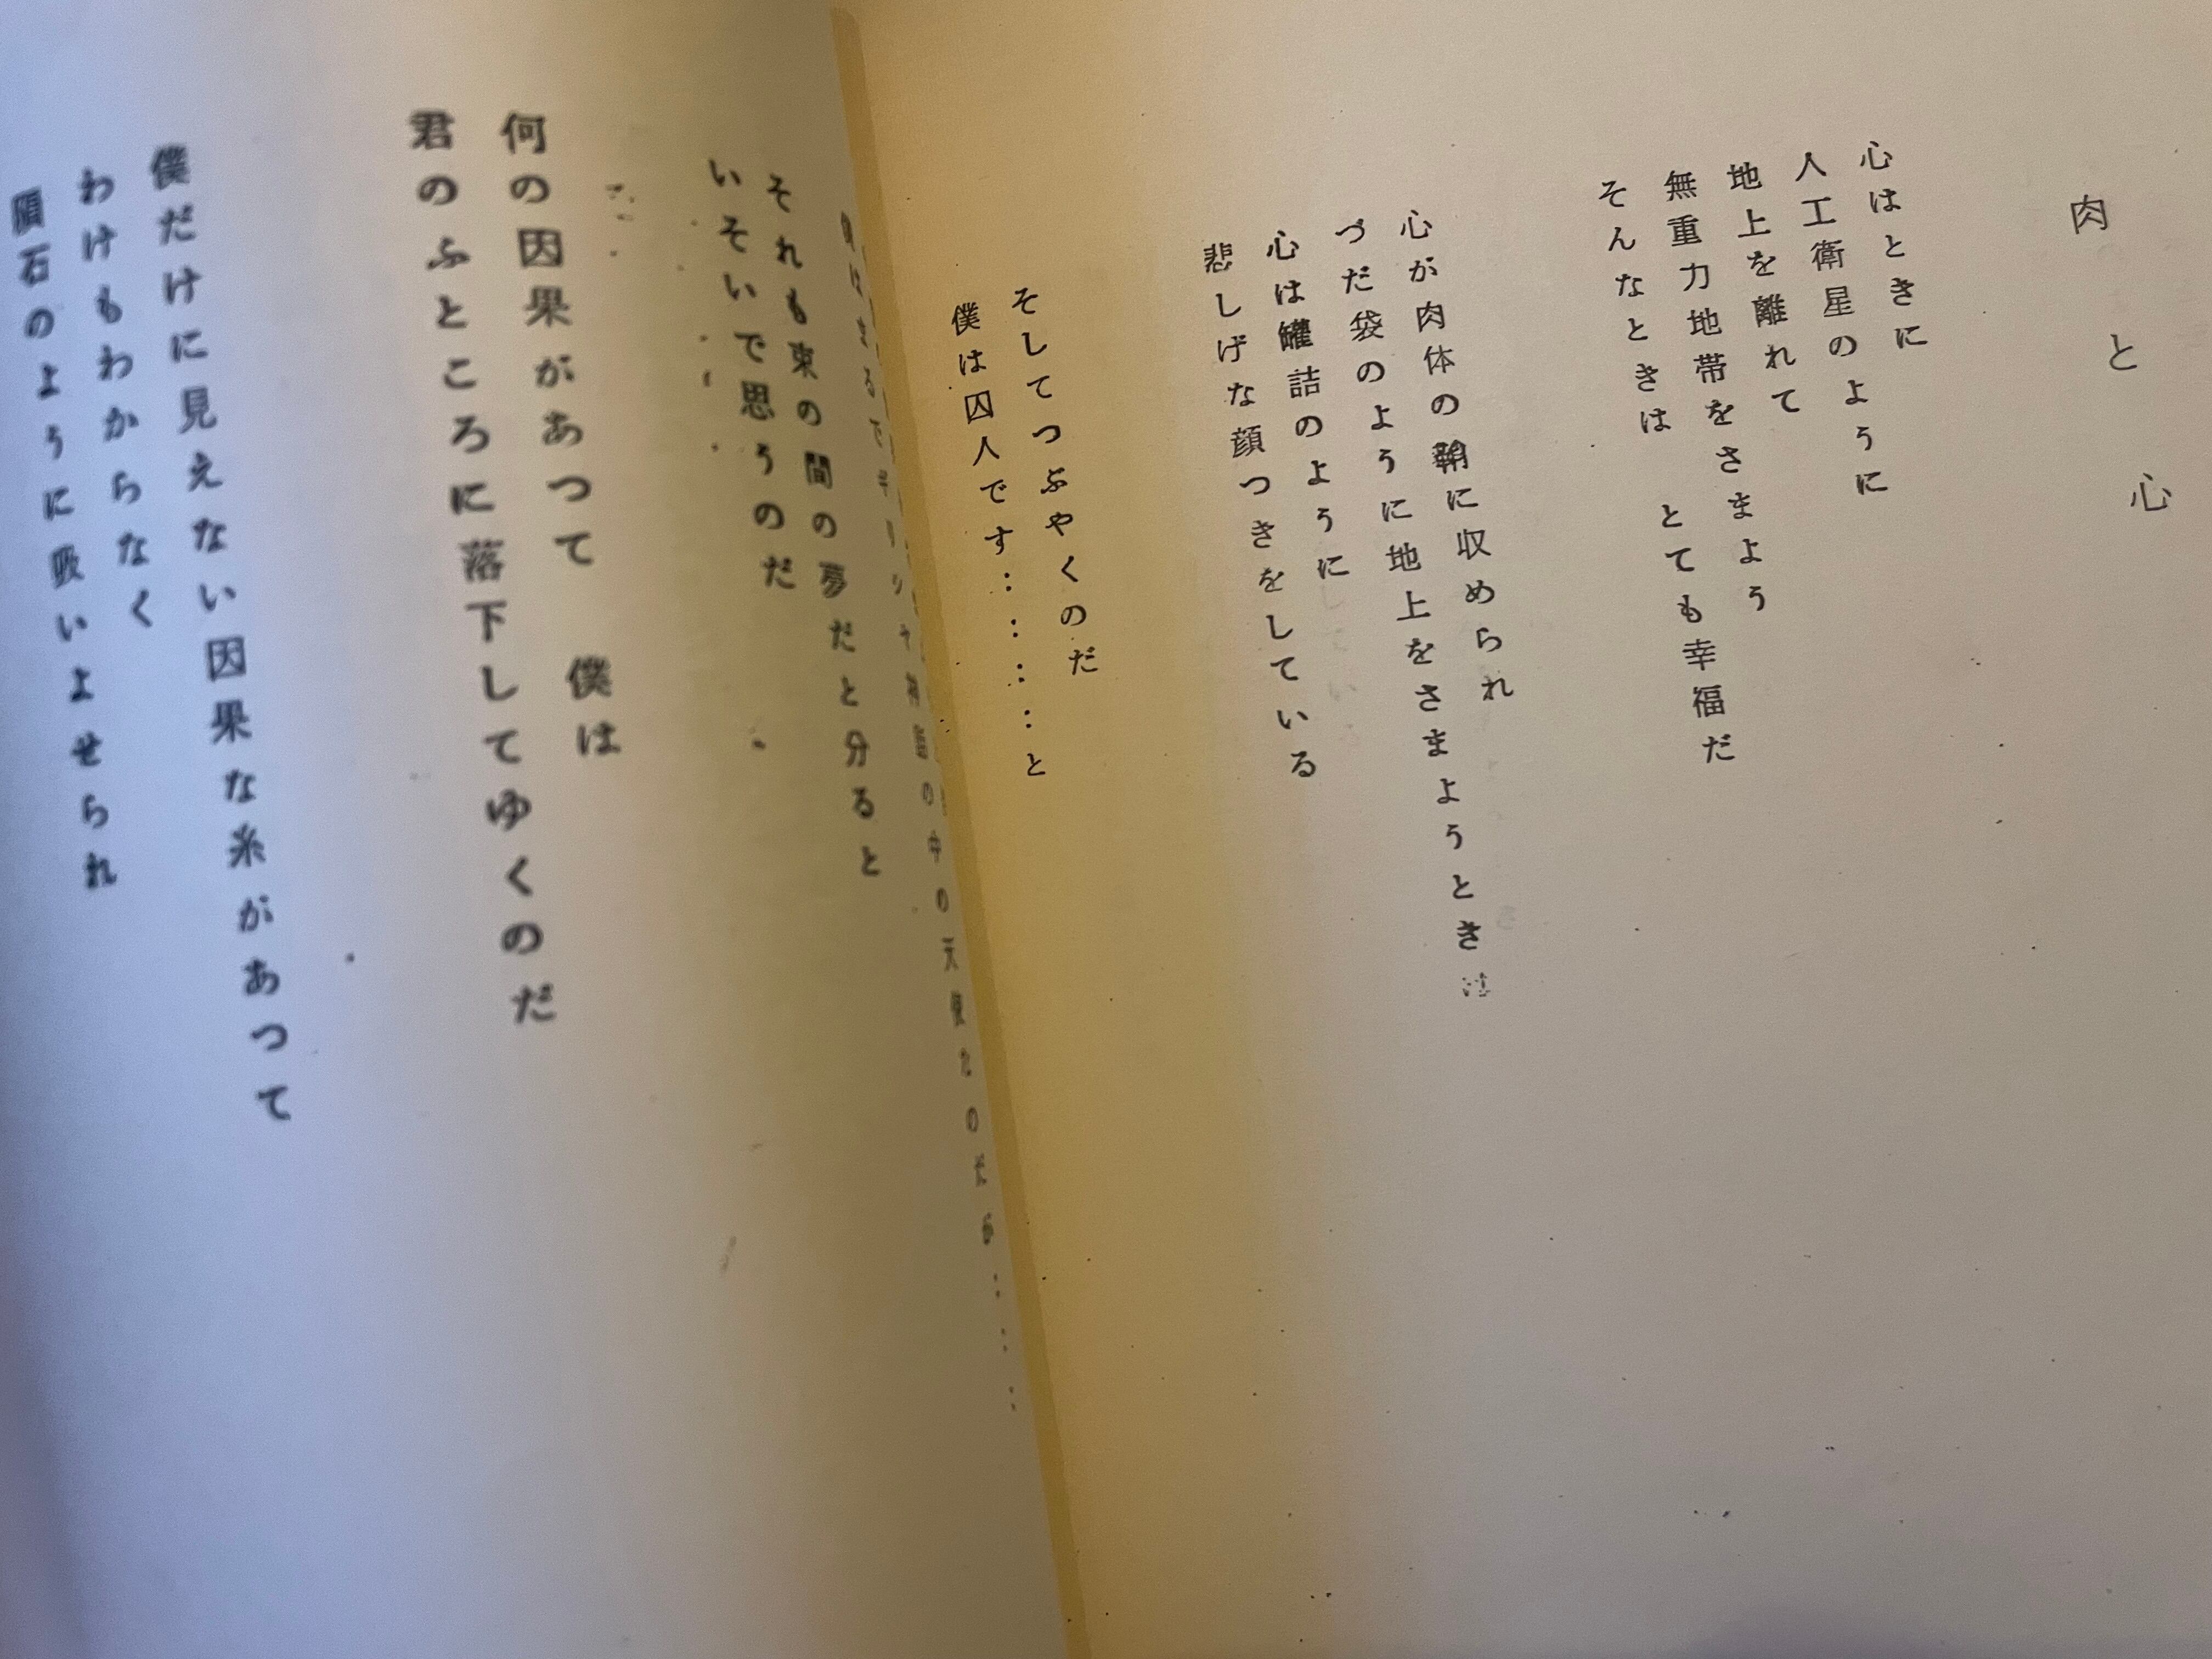 肉と心
心はときに
人工衛星のように
地上を離れて
無重力地帯をさまよう
そんなときは　とても幸福だ
心が肉体の鞘に収められ
づだ袋のように地上をさまようときは
心は罐詰のように
悲しげな顔つきをしている
そしてつぶやくのだ
僕は囚人です…………と
の中の天使
それも束の間の夢だと分ると
いそいで思うのだ
何の因果があつて　僕は
君のふところに落下してゆくのだ
僕だけに見えない因果な糸があつて
わけもわからなく
隕石のように吸いよせられ